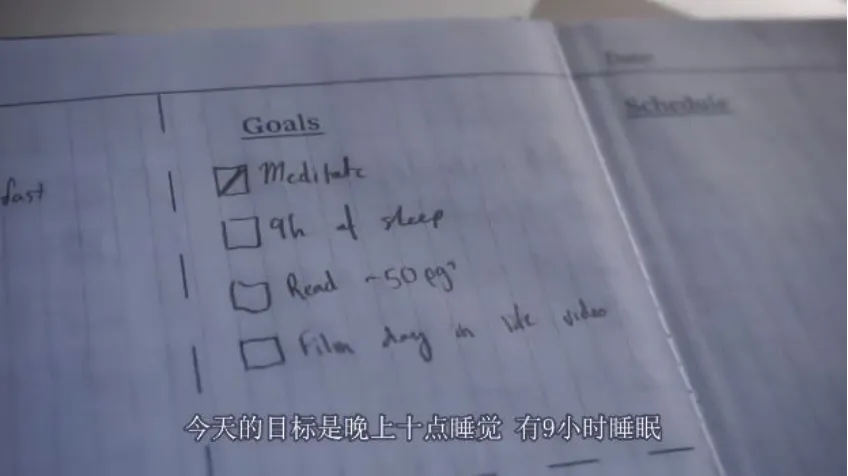 Goals
Schedule
fast
Meditate
9h of sleep
Read ~50 pgs
Film day in life video
今天的目标是晚上十点睡觉 有9小时睡眠